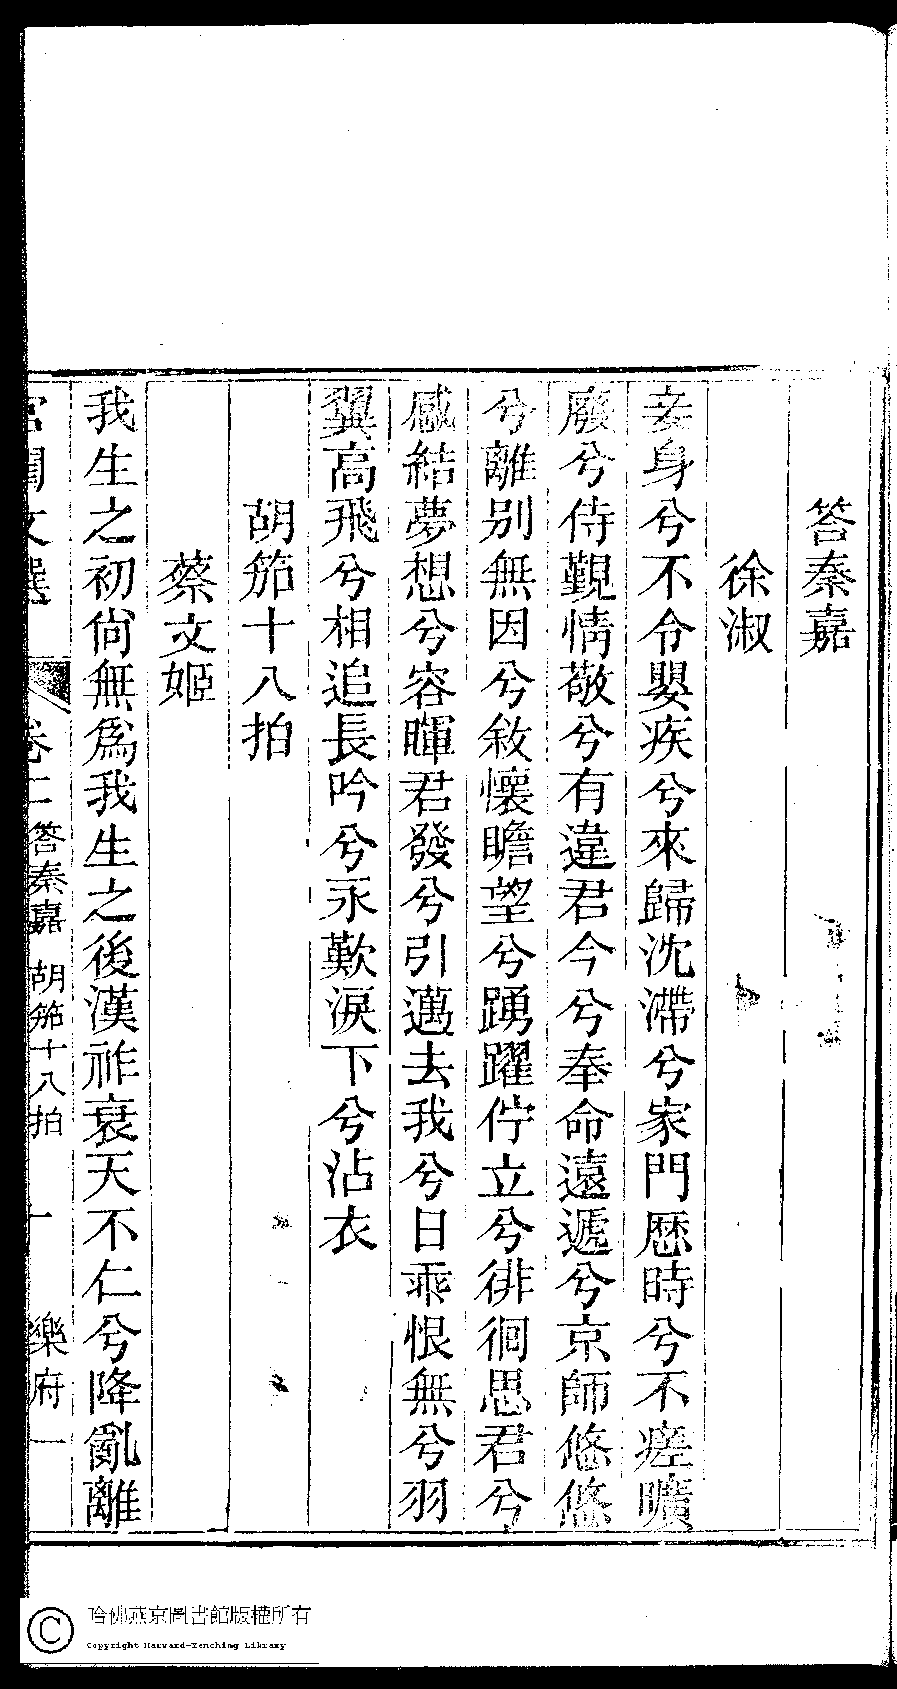 答秦嘉
徐淑
妾身兮不令嬰疾兮來歸沈滯兮家門歷時兮不瘥曠
廢兮侍覲情敬兮有違君今兮奉命遠遞兮京師悠悠
兮離別無因兮敘懷瞻望兮踴躍佇立兮徘徊思君兮
感結夢想兮容暉君發兮引邁去我兮日乖恨無兮羽
翼高飛兮相追長吟兮永歎淚下兮沾衣
胡笳十八拍
蔡文姬
我生之初尙無爲我生之後漢祚衰天不仁兮降亂離
宮閨文選 卷二 答秦嘉 胡笳十八拍 一 樂府一
哈佛燕京圖書館版權所有
Copyright Harvard-Yenching Library